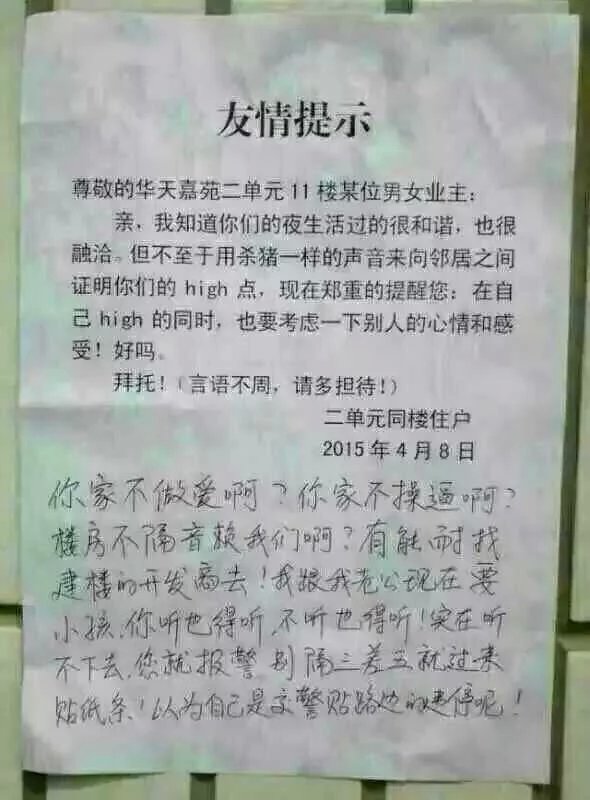 友情提示
尊敬的华天嘉苑二单元11楼某位男女业主：
亲，我知道你们的夜生活过的很和谐，也很
融洽。但不至于用杀猪一样的声音来向邻居之间
证明你们的high点，现在郑重的提醒您：在自
己high的同时，也要考虑一下别人的心情和感
受！好吗。
拜托！（言语不周，请多担待！）
二单元同楼住户
2015年4月8日
你家不做爱啊？你家不操逼啊？
楼房不隔音赖我们啊？有能耐找
建楼的开发商去！我跟我老公现在要
小孩，你听也得听，不听也得听！实在听
不下去，您就报警，别隔三差五就过来
贴纸条！以为自己是交警贴路边的违停呢！